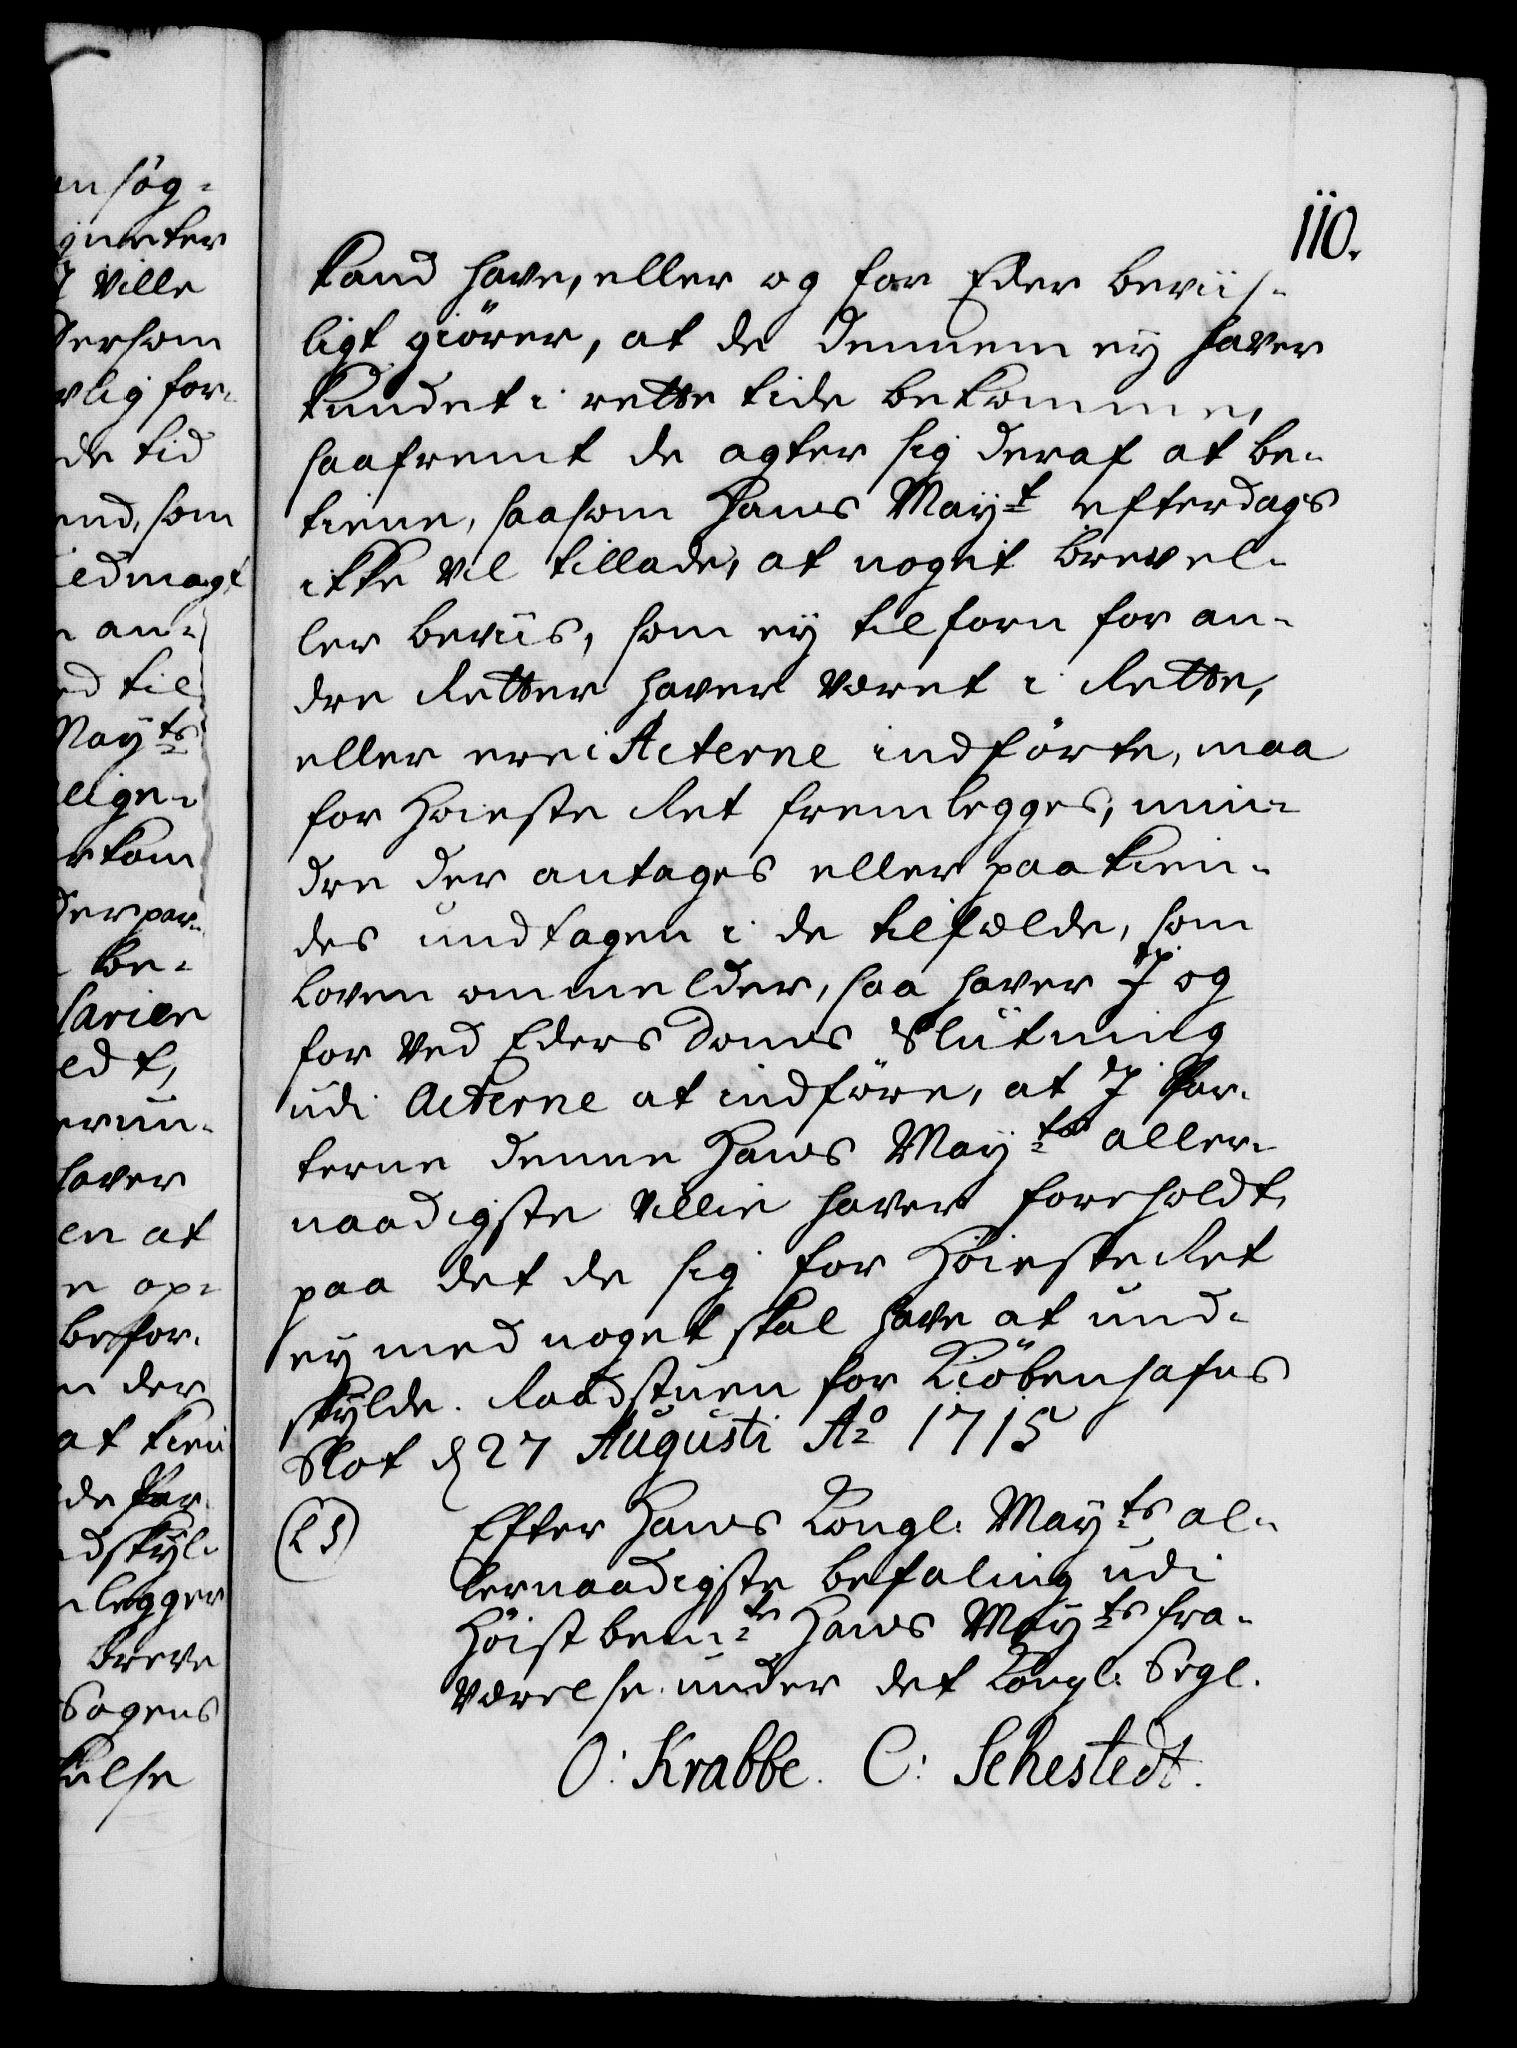 110.
kand have, eller og for Eder beviis-
ligt giörer, at de dennem ey haver
kundet i rette tide bekomme,
saafremt de agter sig deraf at be-
tiene, saasom Hans Mayt efterdags
ikke vil tillade, at noget brev el-
ler beviis, som ey tilforn for an-
dre Retter haver været i Rette,
eller ere i Acterne indförte, maa
for Höieste Ret fremlegges, min-
dre der antages eller paakien-
des undtagen i de tilfælde, som
Loven ommelder, saa haver I og
for ved Eders doms Slutning
udi Acterne at indföre, at I Par-
terne denne Hans Mayts aller-
naadigste villie haver foreholdt,
paa det de sig for Höieste Ret
ey med noget skal have at und-
skylde. Raadstuen for Kiöbenhafns
Slot d 27 Augusti Ao 1715
(LS) Efter Hans Kongl. Mayts al-
lernaadigste befaling udi
Höistbemte Hans Mayts fra-
værelse under det Kongl. Segl.
O: Krabbe. C: Sehestedt.